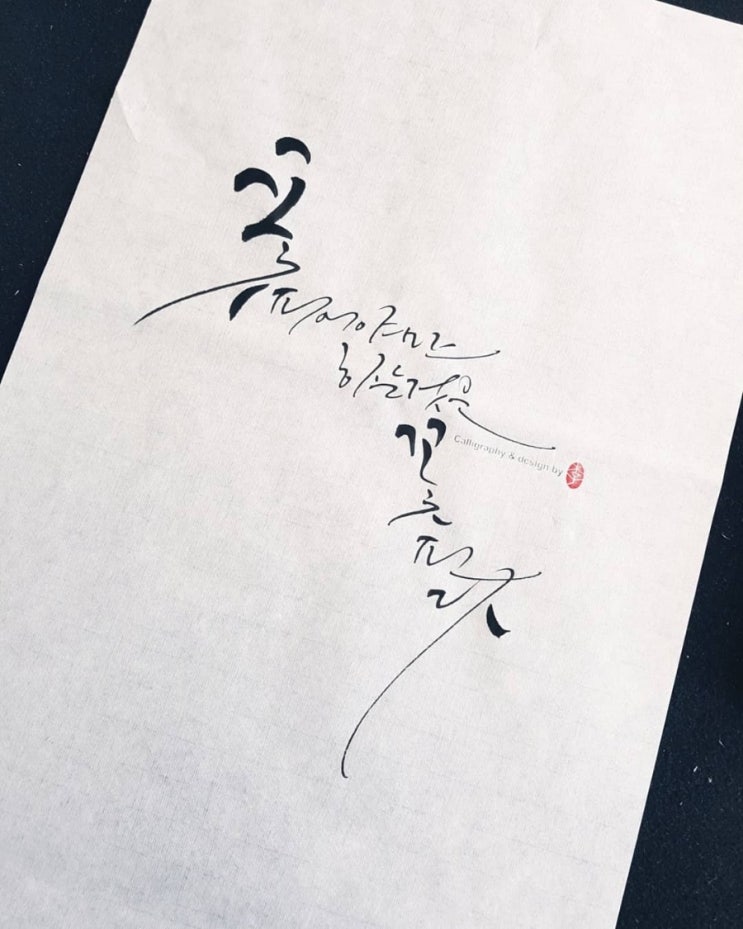 꽃
피어야만
하는 것은
꽃
핀다
Calligraphy & design by